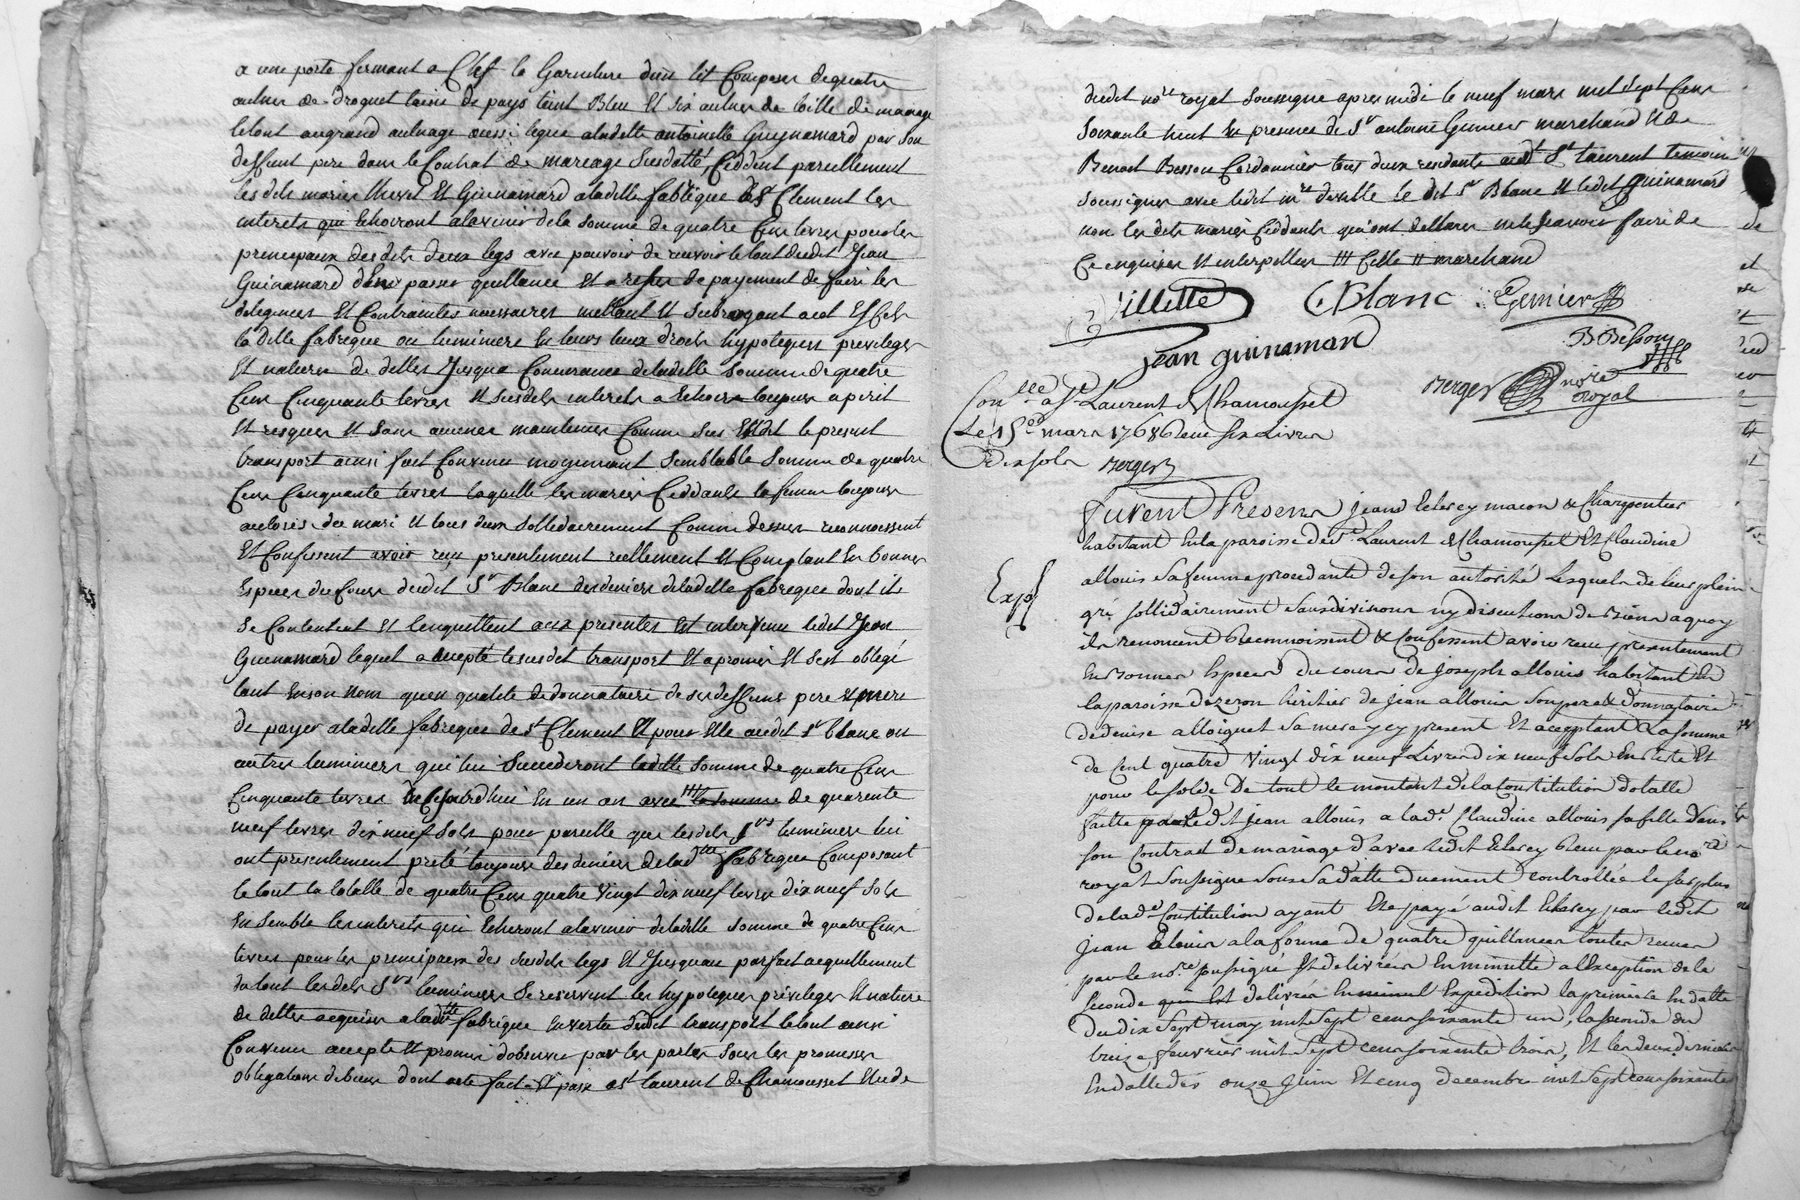 a une porte fermant a Clef la Garniture d'un lit Composer de quatre
aulnes de droguet laisne de pays teint Bleu Et six aulnes de toille de menage
le tout au grand aulnage aussi legue a ladette antoinette Guynamard par son
deffunt pere dans le Contrat de mareage Susdatté, Ceddent pareillement
les dits mariés thevet Et Guinamard a ladette fabrique de St Clement les
interets qui Echoiront a lavenir de la somme de quatre Cens livres pour les
principaux des dits deux legs avec pouvoir de reuvoir le tout dudit Jean
Guinamard d'en passer quittance Et a refus de payement de faire les
diligences Et Contraintes necessaires mettant Et Subrogeant a cet Effet
la ditte fabrique ou luminiere En leurs lieux droits hypoteques privileges
Et natures de dettes Jusqua Concurrance de ladette Somme de quatre
Cens Cinquante livres Et susdits interets a Echoir toujours a perit
Et resques Et Sans aucune maintenue Comme Sus Est dit le present
transport ainsi fait Convenu moyennant Semblable Somme de quatre
Cens Cinquante livres laquelle les mariés Ceddants la femme toujours
autorisé du mari Et tous deux sollidairement Comme dessus reconnoissent
Et Confessent avoir reçu presentement reellement Et Comptant En bonnes
Especes du Cours dudit Sr Blanc des deniers de ladette fabrique dont ils
Se Contentent Et l'enquittent aux presentes Est intervenu ledit Jean
Guinamard lequel a accepté le susdit transport Et a promis Et Sest obligé
tant En son nom quen qualité de donnataire de ses deffuns pere et mere
de payer a ladette fabrique de St Clement Et pour Elle audit Sr blanc ou
autres luminiers qui lui Succederont ladite somme de quatre Cens
Cinquante livres de Cejourdhui En un an avec la somme de quarente
neuf livres dix neuf Sols pour pareille que lesdits Srs luminiers lui
ont presentement preté toujours des deniers de ladtte fabrique Composant
le tout la totalle de quatre Cens quatre vingt dix neuf livres dix neuf Sols
En semble les interets qui Echeront a lavenir de ladette somme de quatre Cens
livres pour les principaux des susdits legs Et Jusquau parfait acquittement
du tout lesdits Srs luminiers Se reservent les hypoteques privileges Et nature
de dettes acquises a ladtte fabrique En vertu dudit transport le tout ainsi
Convenu accepté Et promis dobserver par les parties sous les promesses
obligations de biens dont acte fait Et passé a St laurent de Chamousset Etude
dudit nore royal Soussigne apres midi le neuf mars mil sept Cens
Soixante huit En presence de Sr antoine Gemier marchand Et de
Benoit Besson Cordonnier tous deux residents audt St laurent temoins
soussignes avec ledit mre devillette le dit Sr Blanc Et ledit Guinamard
non les dits mariés Ceddants qui ont declaré ne le sçavoir faire de
Ce enquises Et interpellés /// Celle // marchand
Villette CBlanc Gemier
Jean guinaman BBesson
Berger nore royal
Conlle a St Laurent de Chamousset
Le 15e mars 1768 reçu six Livres
dix sols Berger
Exp
Furent Presens jean Elercy macon & Charpentier
habitant En la paroisse de St Laurent de Chamousset Et Claudine
allouis sa femme procedante de son autorité lesquels de leurs plein
gré sollidairement sans division ny discutions de Biens a quoy
ils renoncent Reconnoissent & Confessent avoir reçu presentement
En Bonnes Especes du cours de joseph allouis habitant En
la paroisse dyzeron héritier de jean allouis son pere & donnataire
de denise alloignet sa mere y present Et acceptant La somme
de Cent quatre vingt dix neuf Livres dix neuf Sols En Reste Et
pour le solde de tout le montant de la Constitution dotalle
faitte par ledit jean allouis a lade Claudine allouis sa fille dans
son Contrat de mariage d'avec ledit Elercy Reçu par le nore
royal Soussigne sous sa datte duement controllée le surplus
de lade Constitution ayant Eté payé audit Elercy par ledit
jean allouis a la forme de quatre quittances toutes reçues
par le nore soussigné Et delivrées En minutte a lexception de la
seconde qui Est delivrée En Expedition la premiere En datte
du dix sept may mil sept cens soixante un, la seconde du
treize feuvrier mil sept cens soixante trois, Et les deux dernieres
En datte des onze juin Et cinq decembre mil sept cens soixante